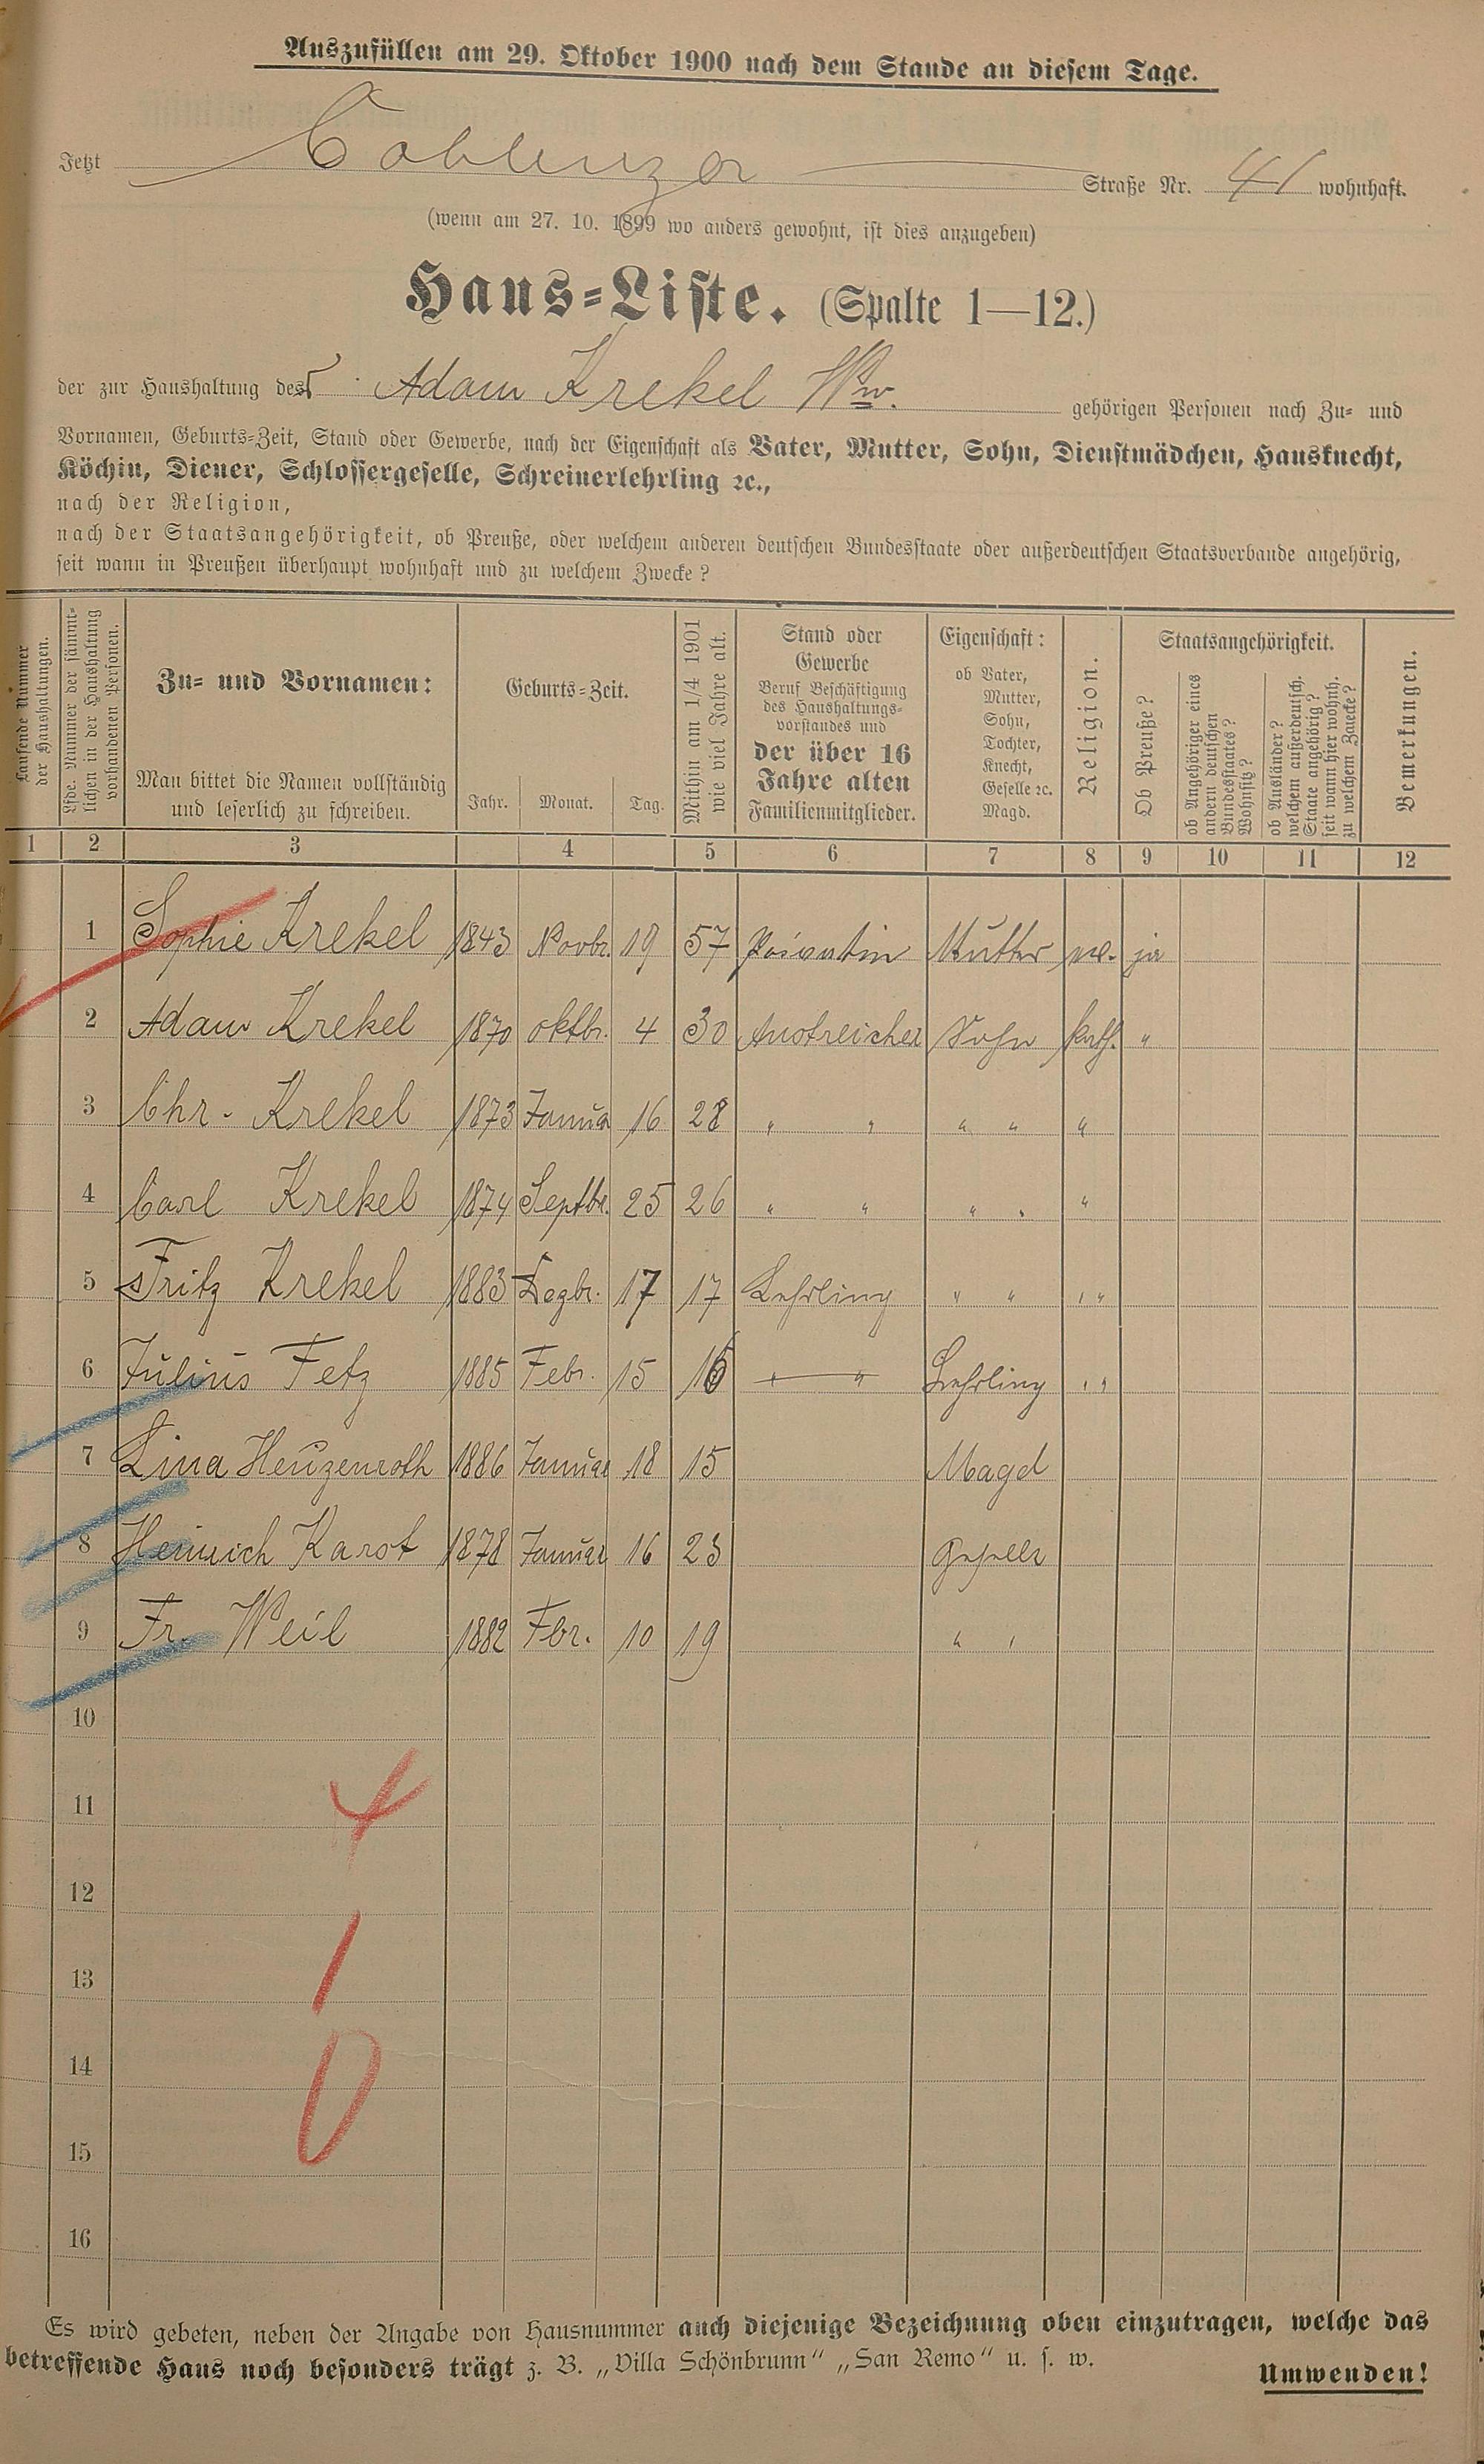 Auszufüllen am 29. Oktober 1900 nach dem Stande an diesem Tage.
Jetzt Coblenzer Straße Nr. 41 wohnhaft.
(wenn am 27. 10. 1899 wo anders gewohnt, ist dies anzugeben)
Haus-Liste. (Spalte 1—12.)
der zur Haushaltung des Adam Krekel Ww. gehörigen Personen nach Zu- und
Vornamen, Geburts-Zeit, Stand oder Gewerbe, nach der Eigenschaft als Vater, Mutter, Sohn, Dienstmädchen, Hausknecht,
Köchin, Diener, Schlossergeselle, Schreinerlehrling ꝛc.,
nach der Religion,
nach der Staatsangehörigkeit, ob Preuße, oder welchem anderen deutschen Bundesstaate oder außerdeutschen Staatsverbande angehörig,
seit wann in Preußen überhaupt wohnhaft und zu welchem Zwecke?
Laufende Nummer
der Haushaltungen.
Lfde. Nummer der sämmt-
lichen in der Haushaltung
vorhandenen Personen.
Zu- und Vornamen:
Man bittet die Namen vollständig
und leserlich zu schreiben.
Geburts-Zeit.
Jahr. Monat. Tag.
Mithin am 1/4 1901
wie viel Jahre alt.
Stand oder
Gewerbe
Beruf Beschäftigung
des Haushaltungs-
vorstandes und
der über 16
Jahre alten
Familienmitglieder.
Eigenschaft:
ob Vater,
Mutter,
Sohn,
Tochter,
Knecht,
Geselle ꝛc.
Magd.
Religion.
Staatsangehörigkeit.
Ob Preuße?
ob Angehöriger eines
andern deutschen
Bundesstaates?
Wohnsitz?
ob Ausländer?
welchem außerdeutsch.
Staate angehörig?
seit wann hier wohnh.
zu welchem Zwecke?
Bemerkungen.
1 2 3 4 5 6 7 8 9 10 11 12
1 Sophie Krekel 1843 Novbr. 19 57 Mutter ja
2 Adam Krekel 1870 Oktbr. 4 30 Anstreicher Sohn kath. "
3 Chr. Krekel 1873 Janua 16 28 " " " " "
4 Carl Krekel 1874 Septbr. 25 26 " " " " "
5 Fritz Krekel 1883 Dezbr. 17 17 Lehrling " " "
6 Julius Fetz 1885 Febr. 15 16 " " Lehrling "
7 Lina Heuzenroth 1886 Januar 18 15 Magd
8 Heinrich Karst 1878 Januar 16 23 Geselle
9 Fr. Weil 1882 Fbr. 10 19 " "
10
11
12
13
14
15
16
4
1
0
Es wird gebeten, neben der Angabe von Hausnummer auch diejenige Bezeichnung oben einzutragen, welche das
betreffende Haus noch besonders trägt z. B. „Villa Schönbrunn" „San Remo" u. s. w.
Umwenden!